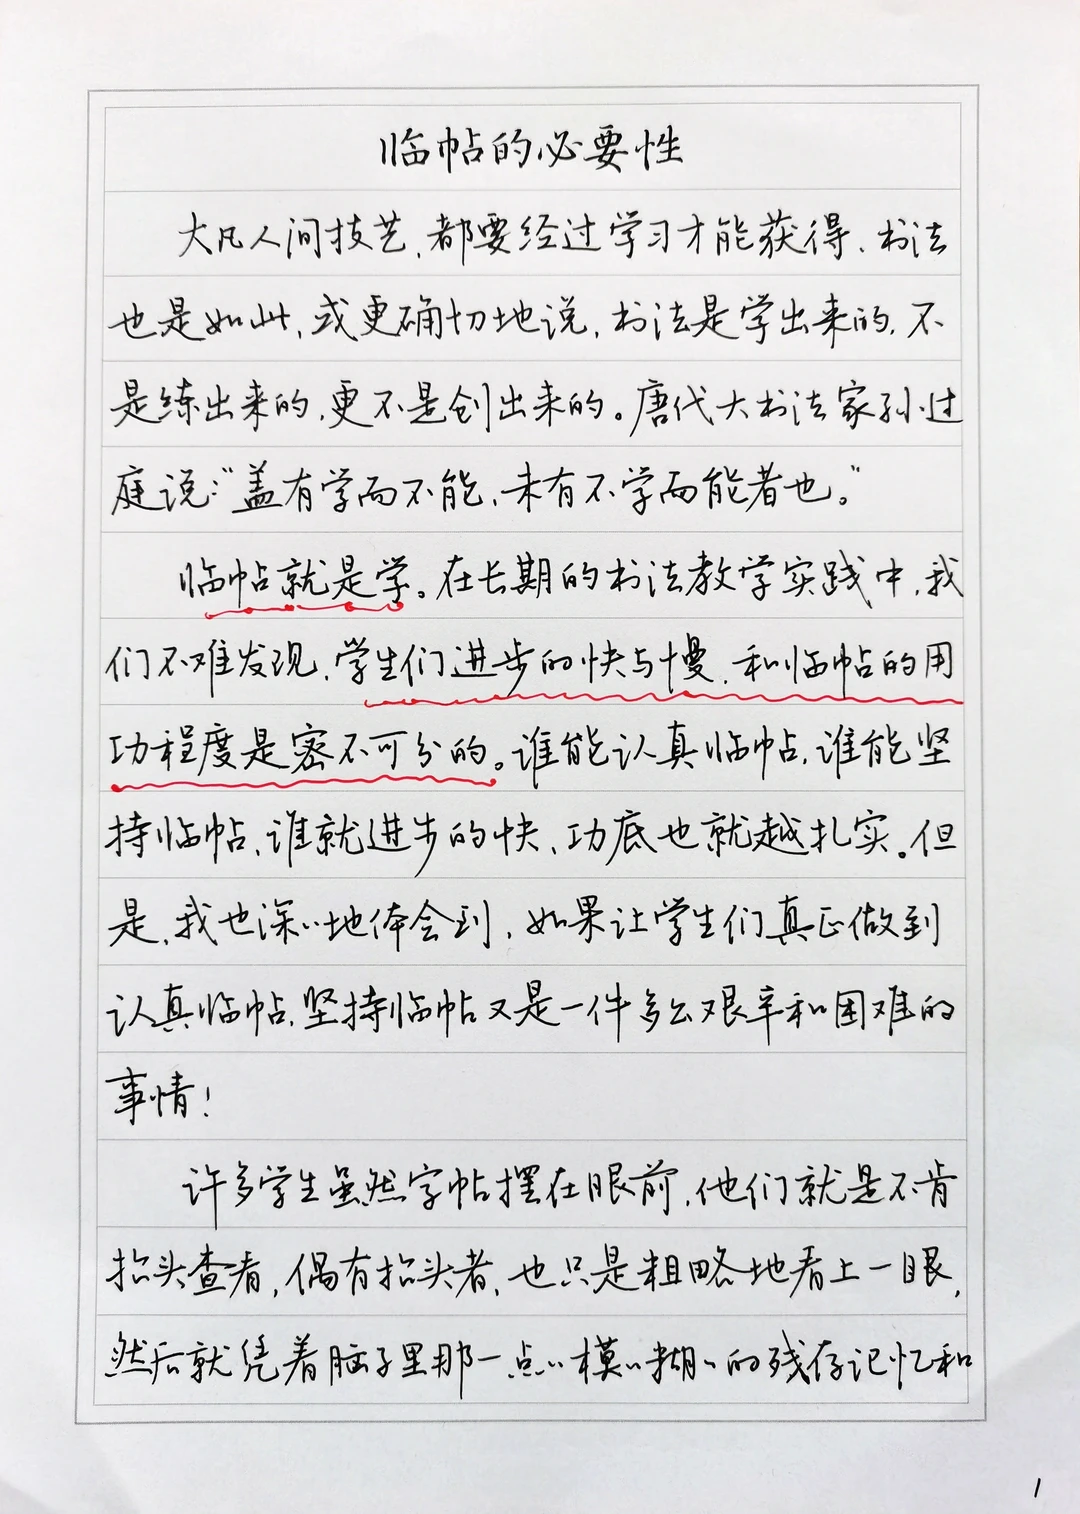 临帖的必要性
大凡人间技艺,都要经过学习才能获得、书法
也是如此,或更确切地说,书法是学出来的,不
是练出来的,更不是创出来的。唐代大书法家孙过
庭说:“盖有学而不能,未有不学而能者也。”
临帖就是学。在长期的书法教学实践中,我
们不难发现,学生们进步的快与慢,和临帖的用
功程度是密不可分的。谁能认真临帖,谁能坚
持临帖,谁就进步的快、功底也就越扎实。但
是,我也深深地体会到,如果让学生们真正做到
认真临帖,坚持临帖又是一件多么艰辛和困难的
事情!
许多学生虽然字帖摆在眼前,他们就是不肯
抬头查看,偶有抬头者,也只是粗略地看上一眼,
然后就凭着脑子里那一点点模模糊糊的残存记忆和
1